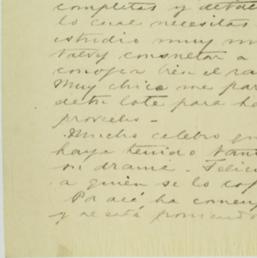 completas y detal
lo cual necesitas
estudio muy m
consultar a
conozca bien el ra
Muy chico me par
de tu lote para h
provecho.-
Mucho celebro qu
haya tenido tan
su drama. Felici
a quien se lo
Por acá ha comen
y se está poniendo